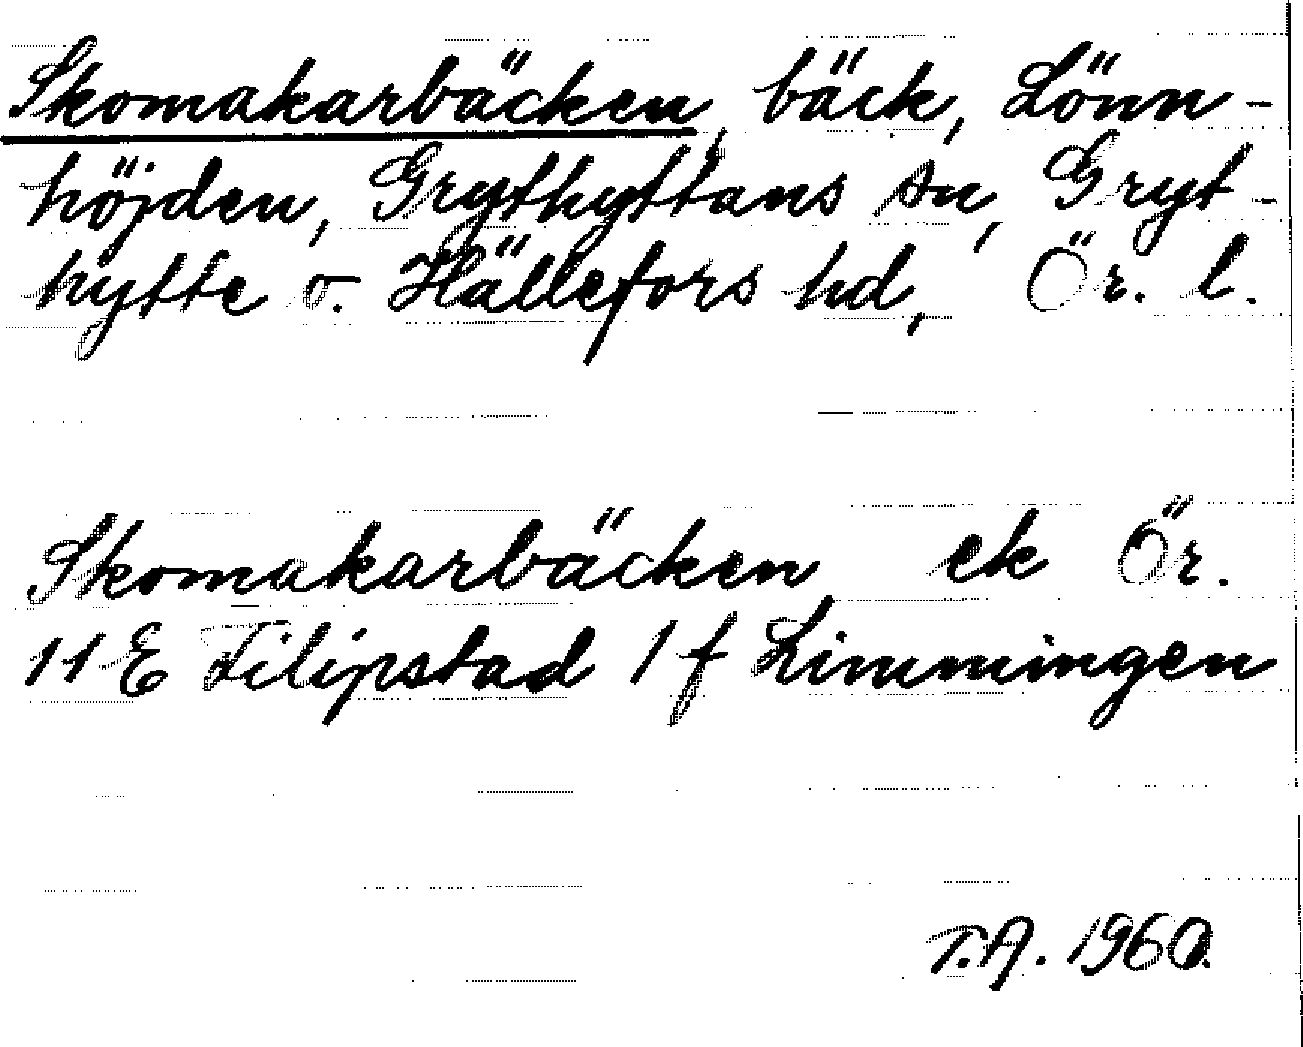 Skomakarbäcken, bäck, Lönn-
höjden, Grythyttans sn, Gryt-
hytte o. Hällefors hd, Ör. l.
Skomakarbäcken ek Ör.
11 E Filipstad 1 f Limmingen
T.A. 1960.